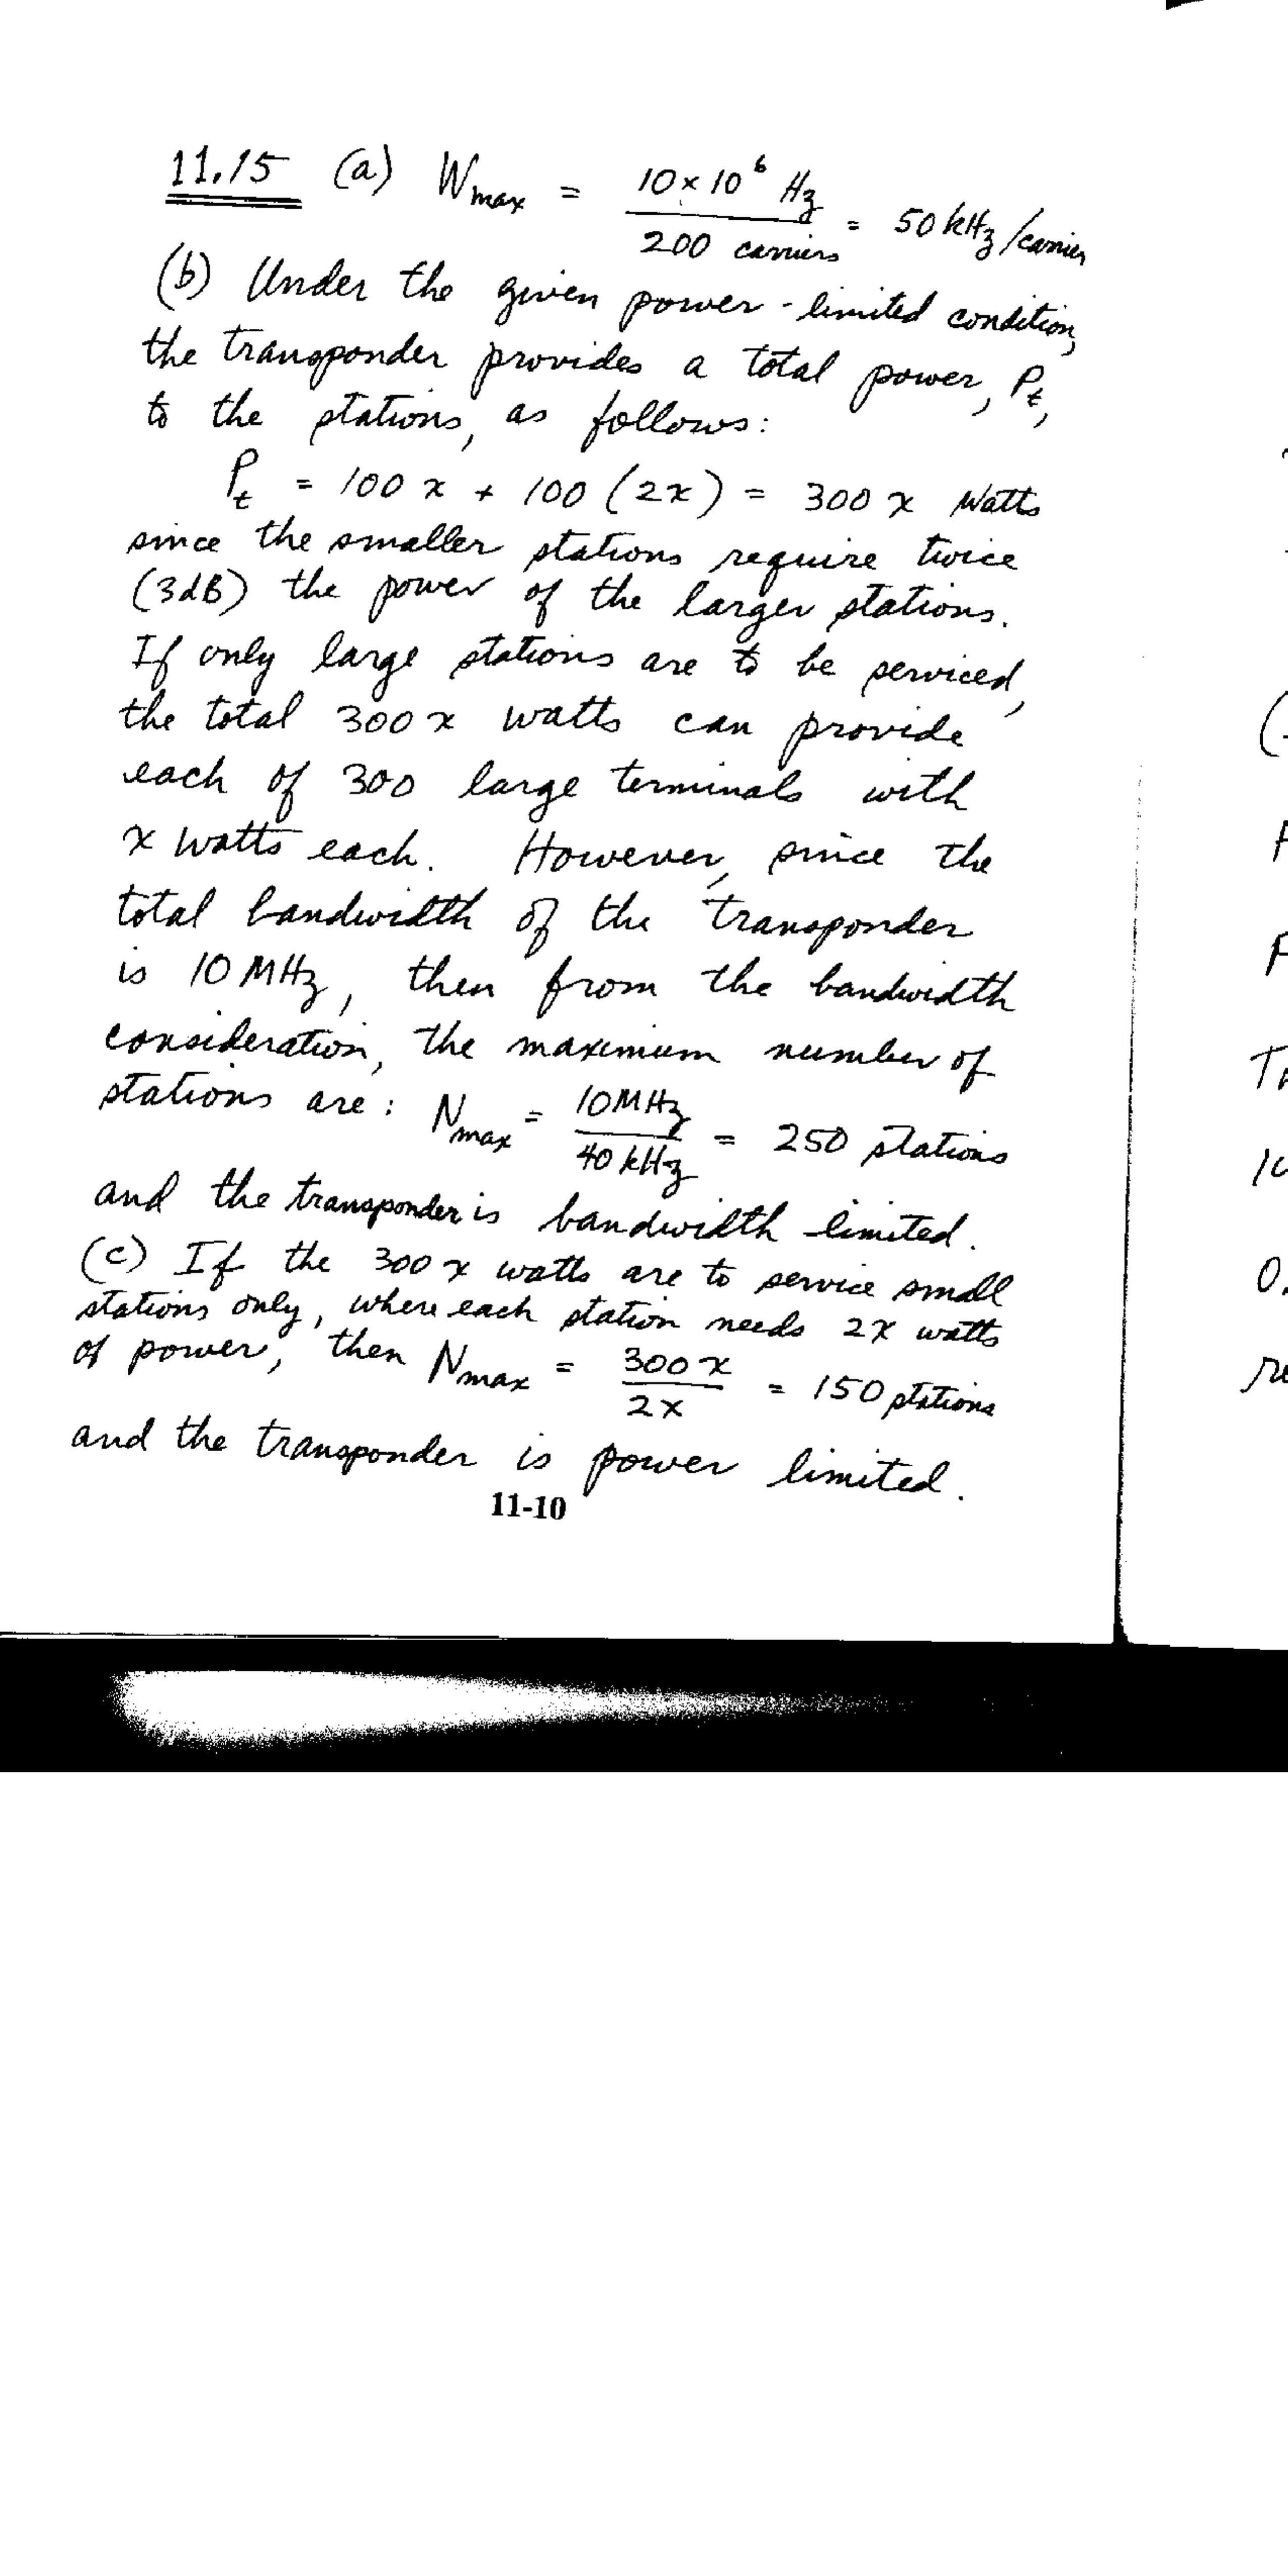 11.15 (a) Wmax = 10 × 10⁶ Hz / 200 carriers = 50 kHz/carrier
(b) Under the given power-limited condition,
the transponder provides a total power, Pt,
to the stations, as follows:
Pt = 100 x + 100 (2x) = 300 x Watts
since the smaller stations require twice
(3dB) the power of the larger stations.
If only large stations are to be serviced,
the total 300 x watts can provide
each of 300 large terminals with
x watts each. However, since the
total bandwidth of the transponder
is 10 MHz, then from the bandwidth
consideration, the maximum number of
stations are: Nmax = 10MHz / 40 kHz = 250 stations
and the transponder is bandwidth limited.
(c) If the 300 x watts are to service small
stations only, where each station needs 2x watts
of power, then Nmax = 300 x / 2x = 150 stations
and the transponder is power limited.
11-10